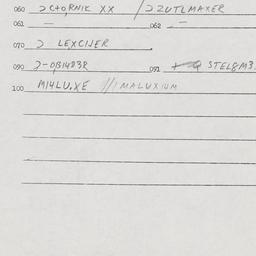 060 ƆC+O,RNIK XX / Ɔ ZUTLMAXER
061 — 062 —
070 Ɔ LEXCIJER
090 Ɔ-OBI483R 091 STEL8M3.
100 MI4LU,XE ///MALUXIUM